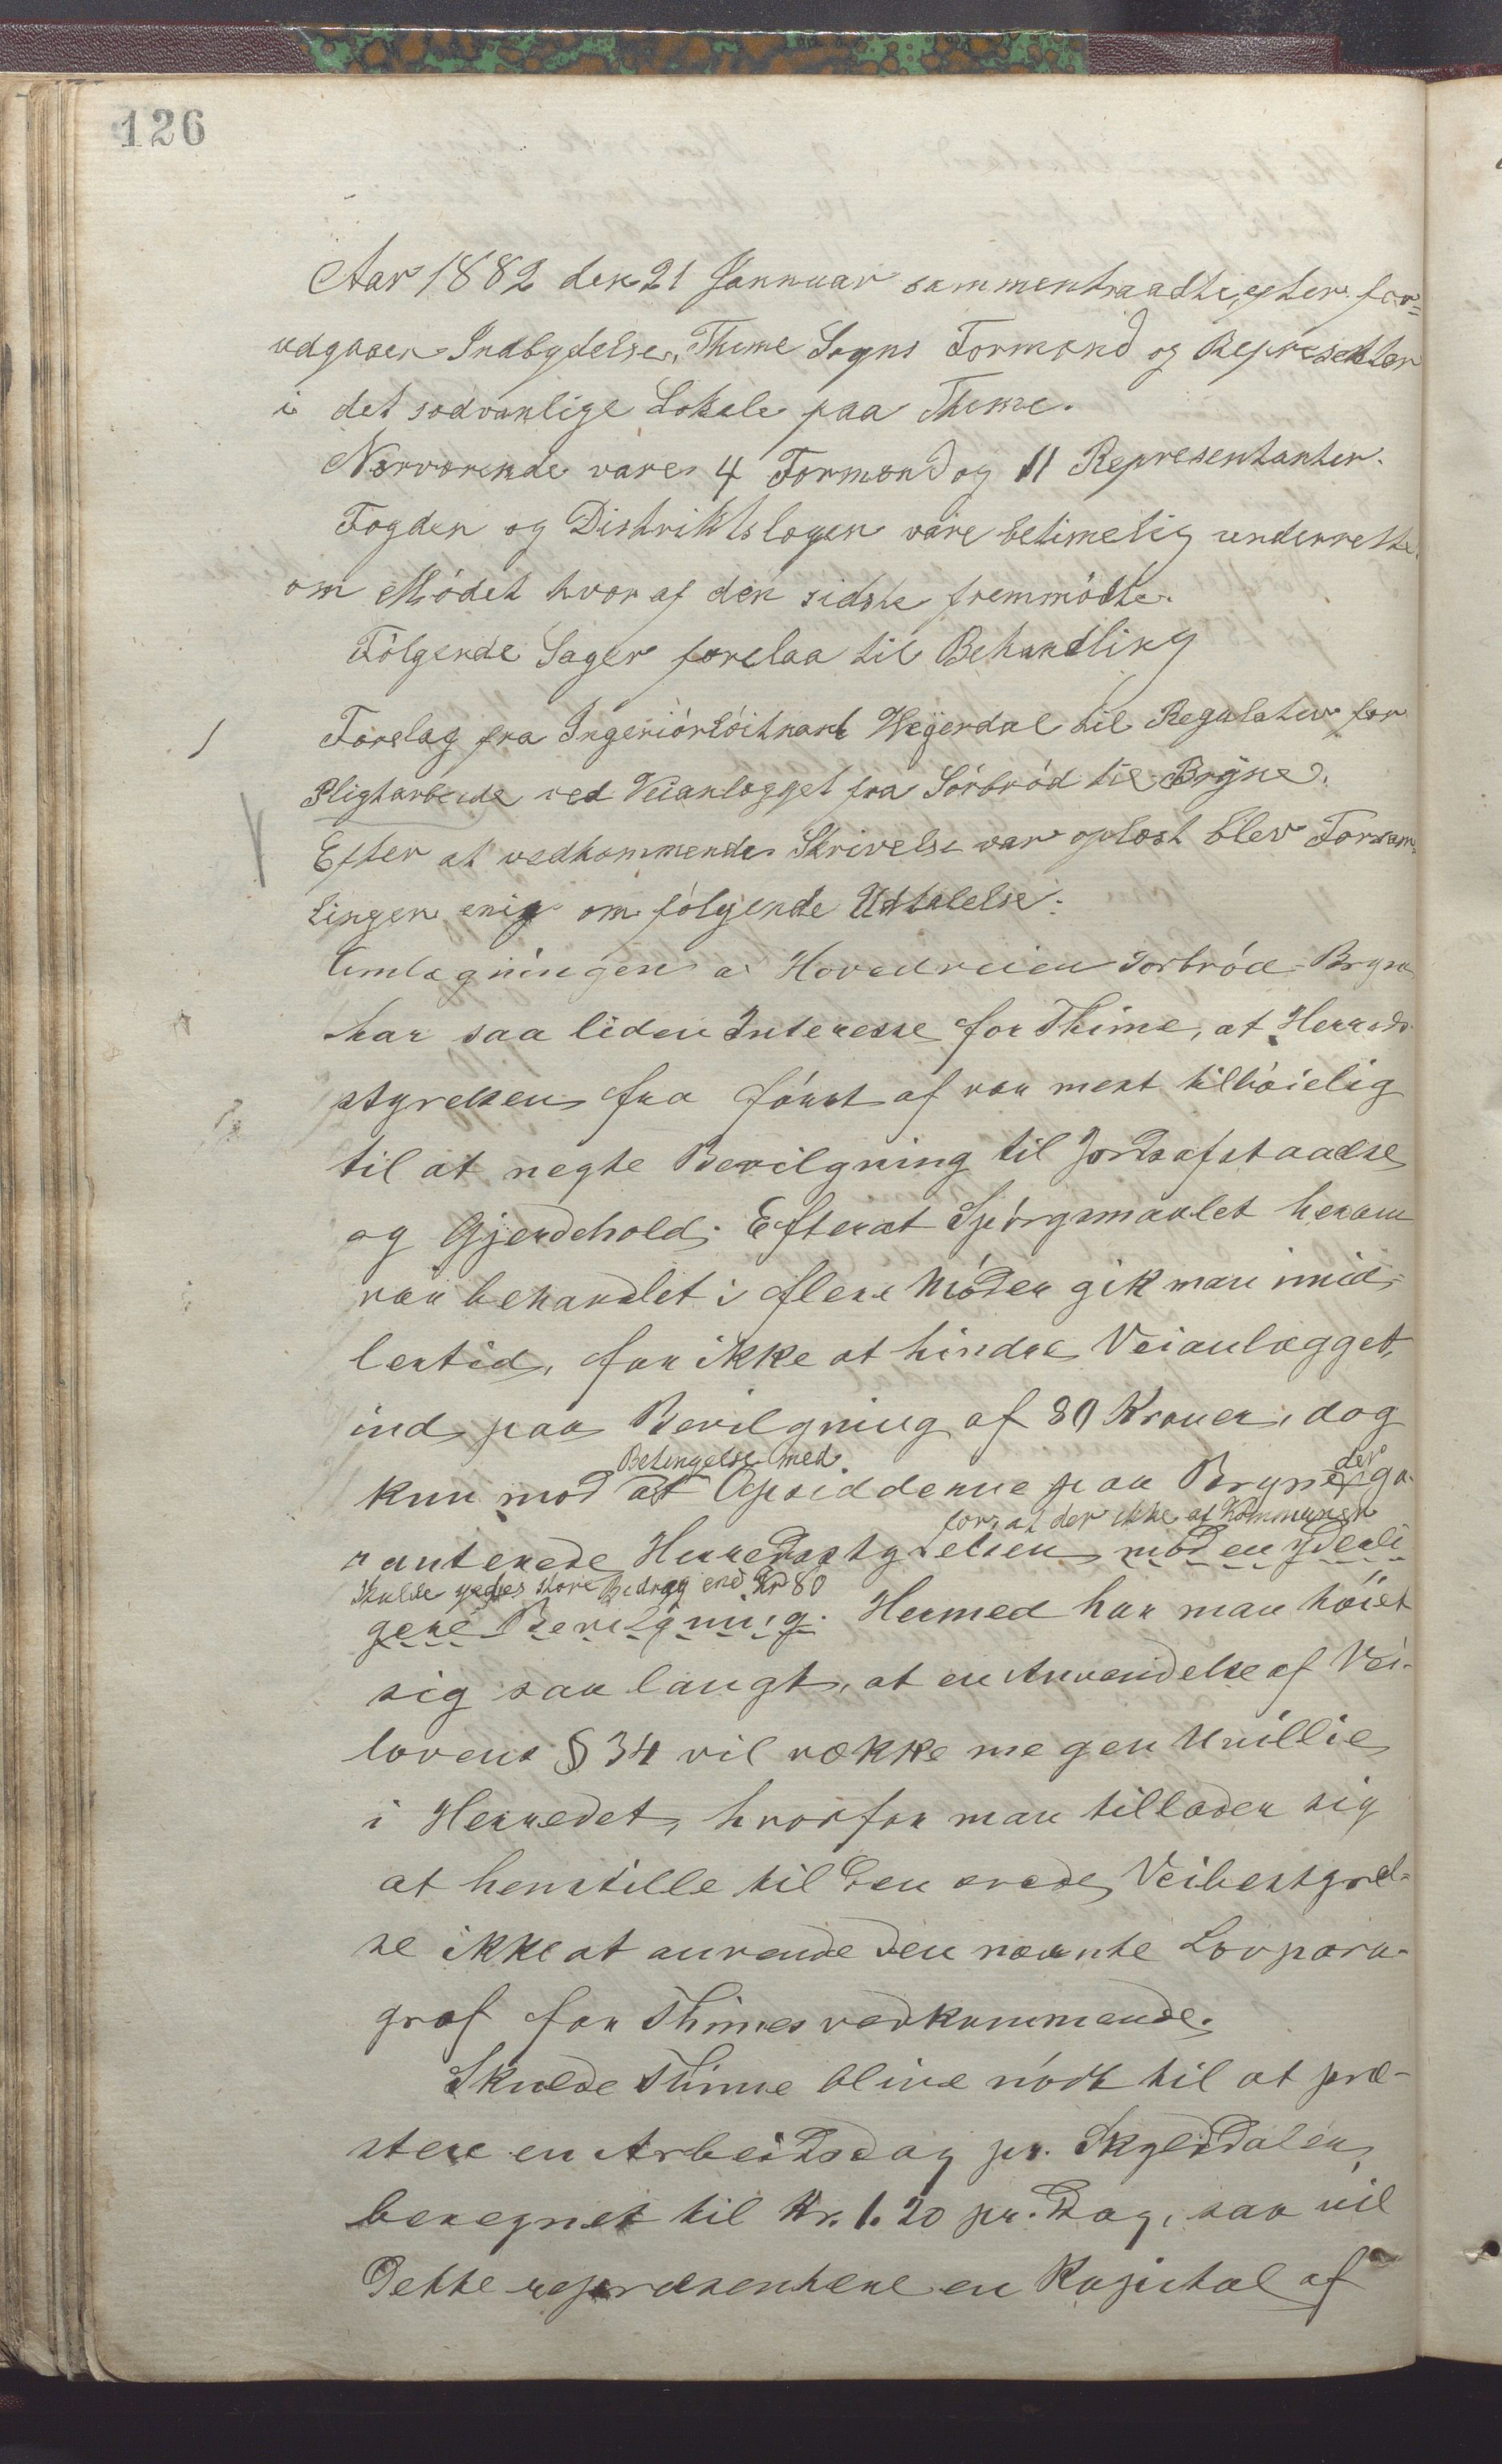 126
Aar 1882 den 21 Jannuar sammentraadte, efter for=
udgaaen Indbydelse, Thime Sogns Formænd og Represekter
i det sedvanlige Lokale paa Thime.
Nærværende vare 4 Formænd og 11 Representanter.
Fogden og Distriktslægen vare betimelig underrette
om Mödet hvoraf den sidste fremmödte.
Fölgende Sager forelaa til Behandling
1 Forslag fra Ingeniörlöitnant Wegerdal til Regulativ for
Pligtarbeide ved Veianlægget fra Sörbröd til Bryne.
Efter at vedkommende Skrivelse var oplæst blev Forsam=
lingen enig om fölgende Udtalelse:
Omlægningen a Hovedveien Sorbröd-Bryne
har saa liden Interesse for Thime, at Herreds
styrelsen fra förut af var mest tilböielig
til at negte Bevilgning til Jordafstaaelse
og Gjerdehold. Efterat Spörgsmaalet herom
var behandlet i flere Möder gik man imid=
lertid, for ikke at hindre Veianlægget,
ind paa Bevilgning af 80 Kroner, dog
Betingelse med der
kun mod at Opsidderne paa Bryne ga-
for, at der ikke af Kommunen
ranterede Herredsstyrelsen mod en yderli
skulde ydes större Bidrag end Kr 80
gere Bevilgning. Hermed har man böiet
sig saa langt, at en Anvendelse af Vei-
lovens § 34 vil vække megen Uvillie
i Herredet, hvorfor man tillader sig
at henstille til den ærede Veibestyrel-
se ikke at anvende den nævnte Lovpara-
graf for Thimes vedkommende.
Skulde Thime blive nödt til at præ-
stere en Arbeidsdag pr. Skylddaler,
beregnet til Kr. 1.20 pr. Dag, saa vil
Dette repræsentere en Kapital af